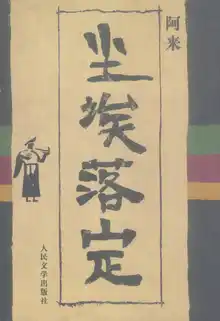 阿来
尘埃落定
人民文学出版社